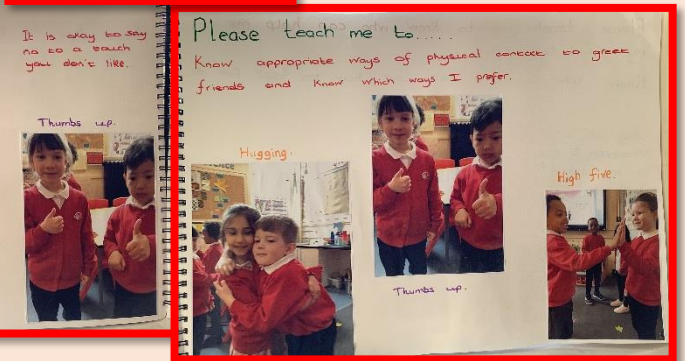 It is okay to say
no to a touch
you don't like.
Thumbs up.
Please teach me to.....
Know appropriate ways of physical contact to greet
friends and know which ways I prefer.
Hugging.
Thumbs up.
High five.